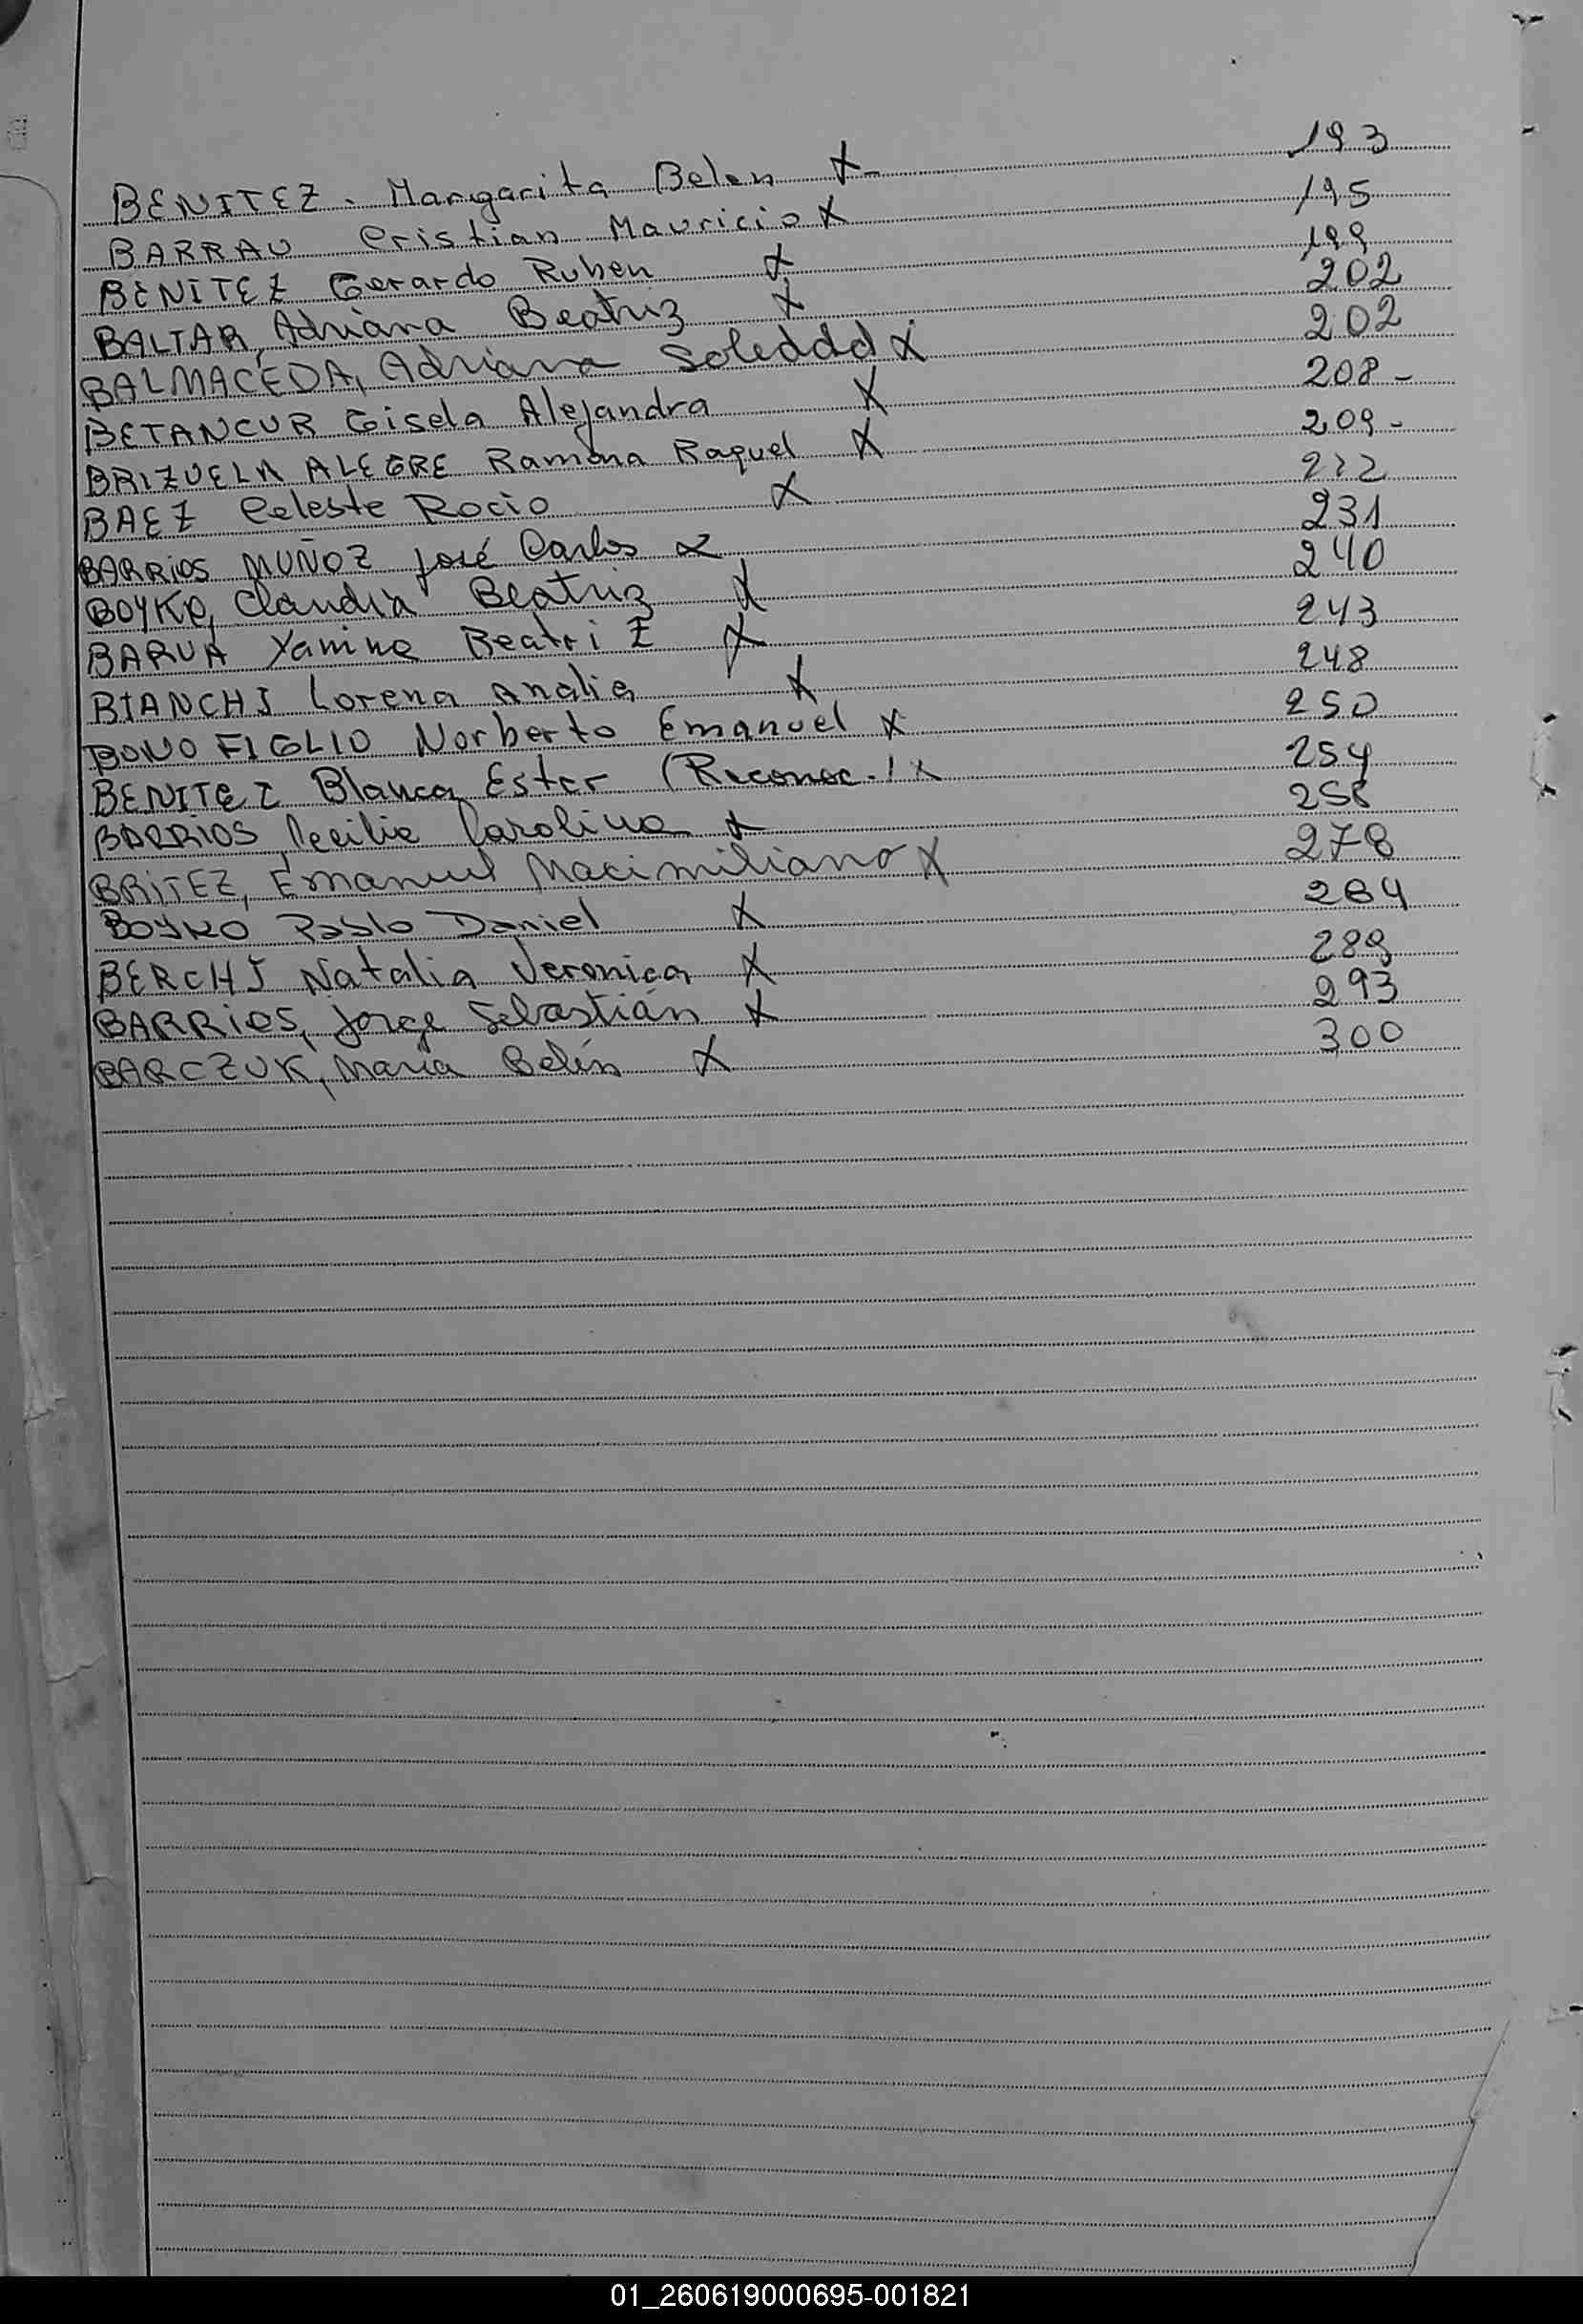 BENITEZ. Margarita Belen X- 193
BARRAU Cristian Mauricio X 195
BENITEZ Gerardo Ruben X 199
BALTAR, Adriana Beatriz X 202
BALMACEDA, Adriana Soledad X 202
BETANCUR Gisela Alejandra X 208-
BRIZUELA ALEGRE Ramona Raquel X 209-
BAEZ Celeste Rocio X
BARRIOS MUÑOZ José Carlos X 231
BOYKO, Claudia Beatriz X 240
BARUA Yanina BeatriZ X 243
BIANCHI Lorena Analia X 248
BONOFIGLIO Norberto Emanuel X 250
BENITEZ Blanca Ester (Reconoc.) X 254
BARRIOS, Cecilia Carolina X
BRITEZ, Emanuel Macimiliano X 278
BOYKO Pablo Daniel X 284
BERCHI Natalia Veronica X 289
BARRIOS, Jorge Sebastián X 293
BARCZUK, María Belén X 300
01_260619000695-001821